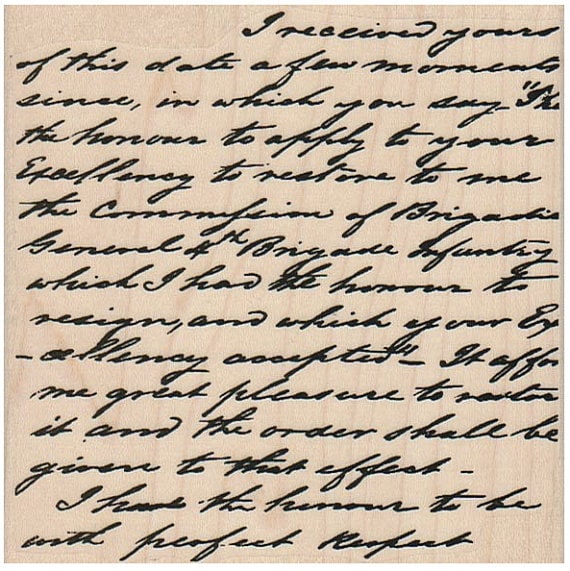 I received yours
of this date a few moments
since, in which you say "I ha
the honour to apply to your
Excellency to restore to me
the Commission of Brigadie
General 4th Brigade Infantry
which I had the honour to
resign, and which your Ex
-cellency accepted"- It affor
me great pleasure to restore
it and the order shall be
given to that effect -
I have the honour to be
with perfect Respect